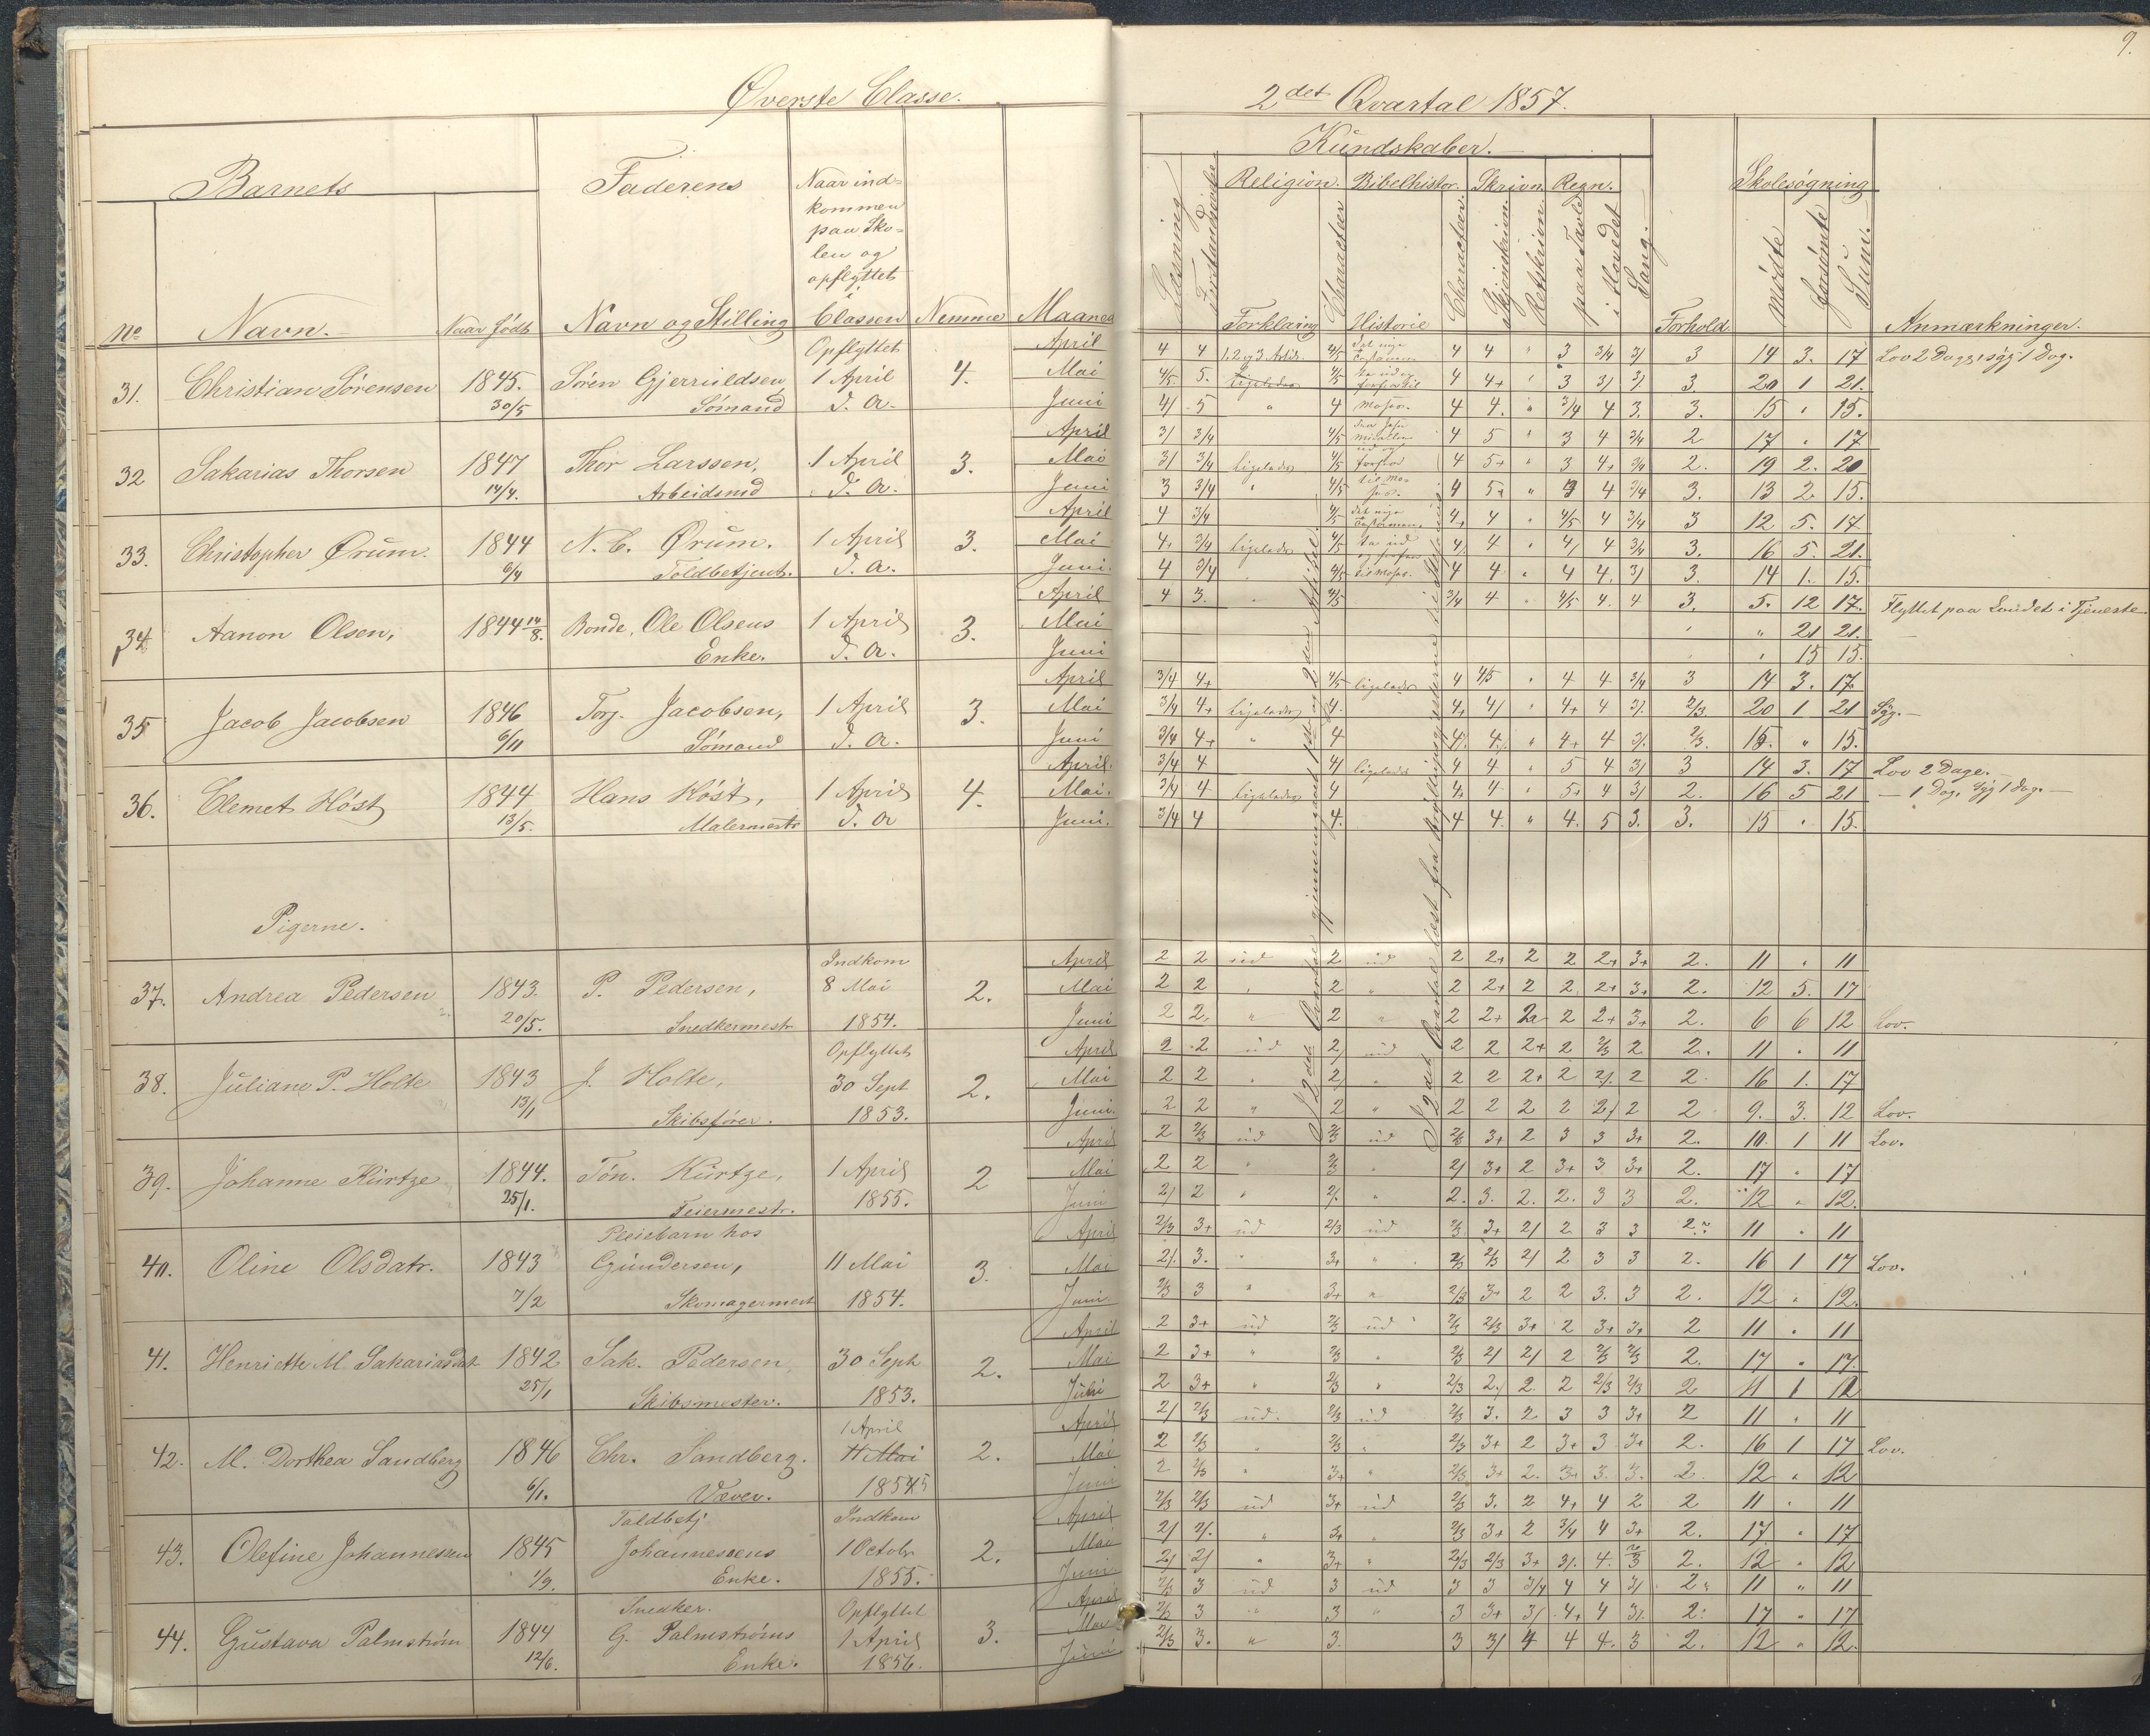 9.
Øverste Classe.
2det Qvartal 1857.
Barnets
Faderens
Naar ind-
kommen
paa Sko-
len og
opflyttet
Classen
Kundskaber.
Religion. Bibelhistor. Skrivn. Regn.
Skolesøgning
No Navn. Naar født Navn og Stilling Nemme Maaned
Læsning Forklaring Characteer Historie Characteer Skjønskrivn. Retskrivn. paa Tavle i Hovedet Sang. Forhold mødte forsømte Sum. Anmærkninger.
31. Christian Sørensen 1845. 30/5 Søren Gjerruldsen Sømand Opflyttet 1 April d. A. 4.
April 4 4 1, 2 og 3. Artik. 4/5 4 4 3 3/4 3/ 3 14 3. 17 Lov 2 Dage, syg 1 Dag.
Mai 4/5. 5. Ligeledes 4/5 4 4+ 3 3/ 3/. 3. 20 1 21.
Juni 4/ 5 " 4 Moses. 4 4. " 3/4 4 3. 3. 15 " 15.
32 Sakarias Thorsen 1847 14/4. Thor Larssen, Arbeidsmd 1 April d. A. 3.
April 3/ 3/4 4/5 4 5 3 4 3/4 2 17 " 17
Mai 3/ 3/4 Ligeledes 4/5 4 5+ 3 4+ 3/4 2. 19 2. 20
Juni 3 3/4 " 4/5 4 5+ " 3 4 3/4 3. 13 2 15.
33. Christopher Ørum. 1844 6/4 N. C. Ørum. Toldbetjent. 1 April d. A. 3.
April 4 3/4 4/5 4+ 4 4/5 4 3/4 3 12 5. 17
Mai 4+ 3/4 Ligeledes 4/5 4/ 4 4/ 4 3/4 3. 16 5. 21.
Juni. 4 3/4 4/5 til Moses. 4 4 4 4. 3/ 3. 14 1. 15.
34 Aanon Olsen, 1844 14/8. Bonde, Ole Olsens Enke. 1 April d. A. 3.
April 4 3. 4/5 3/4 4 4/5 4. 4 3. 5. 12 17. Flyttet paa Landet i Tjeneste
Mai " 21 21.
Juni " 15 15.
35 Jacob Jacobsen 1846 6/11 Torj. Jacobsen, Sømand 1 April d. A. 3.
April 3/4 4+ 4/5 ligeledes 4 4/5 4 4 3/4 3 14 3. 17
Mai 3/4 4+ Ligeledes 4. 4+ 4/ 4+ 4 3/. 2/3. 20 1 21 Syg.
Juni 3/4 4+ " 4 4/. 4/. " 4+ 4 3/. 2/3. 15. " 15.
36. Clemet Høst 1844 13/5. Hans Høst, Malermestr 1 April d. A 4.
April. 3/4 4 4/ ligeledes 4 4 5 4 3/ 3 14 3. 17 Lov 2 Dage.
Mai. 3/4 4 Ligeledes 4 4+ 4 5+ 4 3/ 2. 16 5 21 — 1 Dag, syg 1 Dag.
Juni. 3/4 4 4. 4 4. " 4. 5 3. 3. 15 " 15.
Pigerne.
37. Andrea Pedersen 1843. 20/5. P. Pedersen, Snedkermestr Indkom 8 Mai 1854. 2.
April 2 2 ud 2 ud 2 2+ 2 2 2+ 3+ 2. 11 " 11
Mai 2 2 " 2 " 2 2+ 2 2 2+ 3+ 2. 12 5. 17
Juni 2 2. " 2 " 2 2+ 2 2 2+ 3+ 2. 6 6 12 Lov.
38. Juliane P. Holte 1843 13/1 J. Holte, Skibsfører. Opflyttet 30 Sept 1853. 2.
April 2 2 ud 2/ ud 2 2 2+ 2 2/3 2 2. 11 " 11
Mai 2 2 " 2/ " 2 2 2+ 2 2/. 2 2. 16 1. 17
Juni. 2 2 " 2 " 2 2 2 2 2/ 2 2 9. 3. 12 Lov.
39. Johanne Kürtze 1844. 25/1. Tøn. Kürtze, Feiermestr. 1 April 1855. 2
April 2 2/3 ud 2/3 ud 2/3 3+ 2 3 3 3+ 2. 10. 1 11 Lov.
Mai 2 2 " 2/3 " 2/ 3+ 2 3+ 3 3+ 2. 17 " 17
Juni 2/ 2 " 2/. " 2. 3. 2. 2. 3 3 2. 12 " 12.
40. Oline Olsdatr. 1843 7/2 Pleiebarn hos Gundersen, Skomagermest 11 Mai 1854. 3.
April 2/3 3+ ud 2/3 ud 2/3 3+ 2/ 2 3 3 2. 11 " 11
Mai 2/. 3. " 3+ " 2/3 2/3 2/ 2 3 3 2. 16 1 17 Lov.
Juni 2/3 3 " 3+ " 2/3 3+ 2 2 3. 3 2. 12 " 12.
41. Henriette M. Sakariasdat 1842 25/1 Sak. Pedersen, Skibsmester. 30 Sept 1853. 2.
April 2 3+ ud 2/3 ud 2/3 2/3 3+ 2 3+ 3+ 2 11 " 11
Mai 2 3+ " 2/3 " 2/3 2/ 2/ 2 2/3 2/3 2. 17 " 17.
Juni 2 3+ " 2/3 " 2/3 2/. 2 2 2/3 2/3 2 11 1 12
42. M. Dorthea Sandberg 1846 6/1. Chr. Sandberg. Væver. 1 April 11 Mai 1855 2.
April 2/ 2/3 ud. 2/3 ud 2/3 3. 2 3 3 3+ 2 11 " 11
Mai 2 2/3 " 2/3 " 2/3 3+ 2 3+ 3 3+ 2. 16 1 17 Lov.
Juni 2 2/3 " 3+ " 2/3 3+ 2. 3+ 3. 3. 2. 12 " 12
43. Olefine Johannessen 1845 1/9. Toldbetj Johannesens Enke. Indkom 1 Octobr 1855. 2.
April 2/3 2/3 ud 3+ ud 2/3 3. 2 4+ 4 2 2 11 " 11
Mai 2/ 2/. " 3+ " 2/3 3+ 2 3/4 4 3+ 2. 17 " 17
Juni 2/ 2/ " 3+ " 2/3 2/3 3+ 3/. 4. 2/3 2. 12 " 12
44. Gustava Palmstrøm 1844 12/6. Snedker. G. Palmstrøms Enke. Opflyttet 1 April 1856. 3.
April 2/3 3 ud 3 ud 3 3 3/4 4 4 3/ 2 11 " 11
Mai 2/3 3 " 3 " 3 3+ 3/ 4+ 4 3/. 2. 17 " 17
Juni 2/3 3. " 3. 3 3/ 4 4 4. 3 2. 12 " 12.